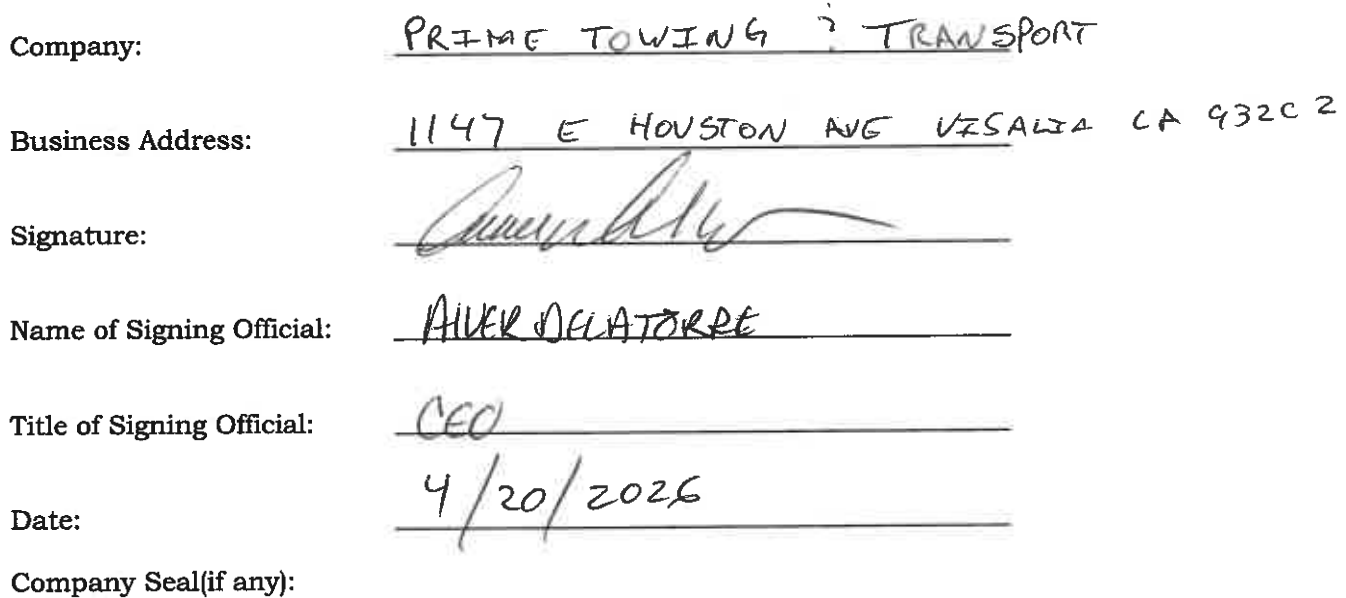 Company: PRIME TOWING & TRANSPORT
Business Address: 1147 E HOUSTON AVE VISALIA CA 932C2
Signature:
Name of Signing Official: AIVER DELATORRE
Title of Signing Official: CEO
Date: 4/20/2026
Company Seal(if any):